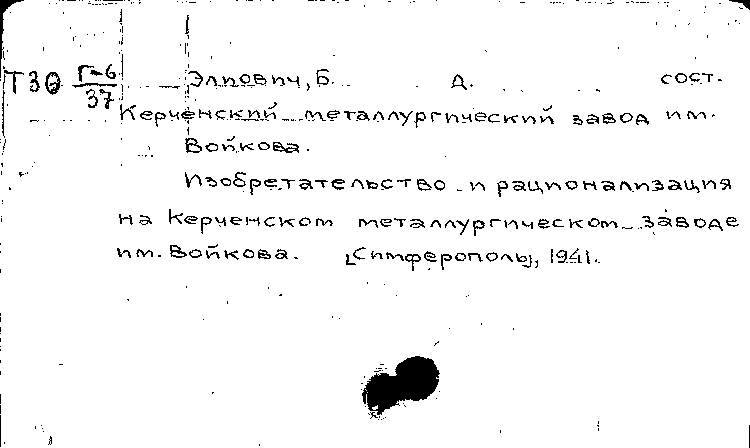 Т30 Г-6/37 Элпович, Б. Д. сост.
Керченский металлургический завод им.
Войкова.
Изобретательство и рационализация
на Керченском металлургическом заводе
им. Войкова. [Симферополь], 1941.